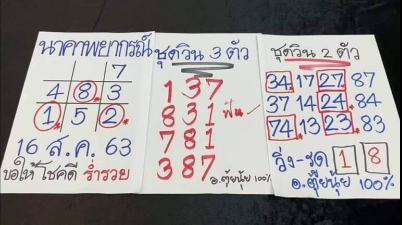 นาคาพยากรณ์
7
4 8 3
1 5 2
16 ส.ค. 63
ขอให้ โชคดี ร่ำรวย
ชุดวิน 3 ตัว
137
831 ฟัน ✓
781
387
อ.ตุ้ยนุ้ย 100%
ชุดวิน 2 ตัว
34. 17 27. 87
37 14 24. 84
74. 13 23. 83
วิ่ง-รูด 1 8
อ.ตุ้ยนุ้ย 100%